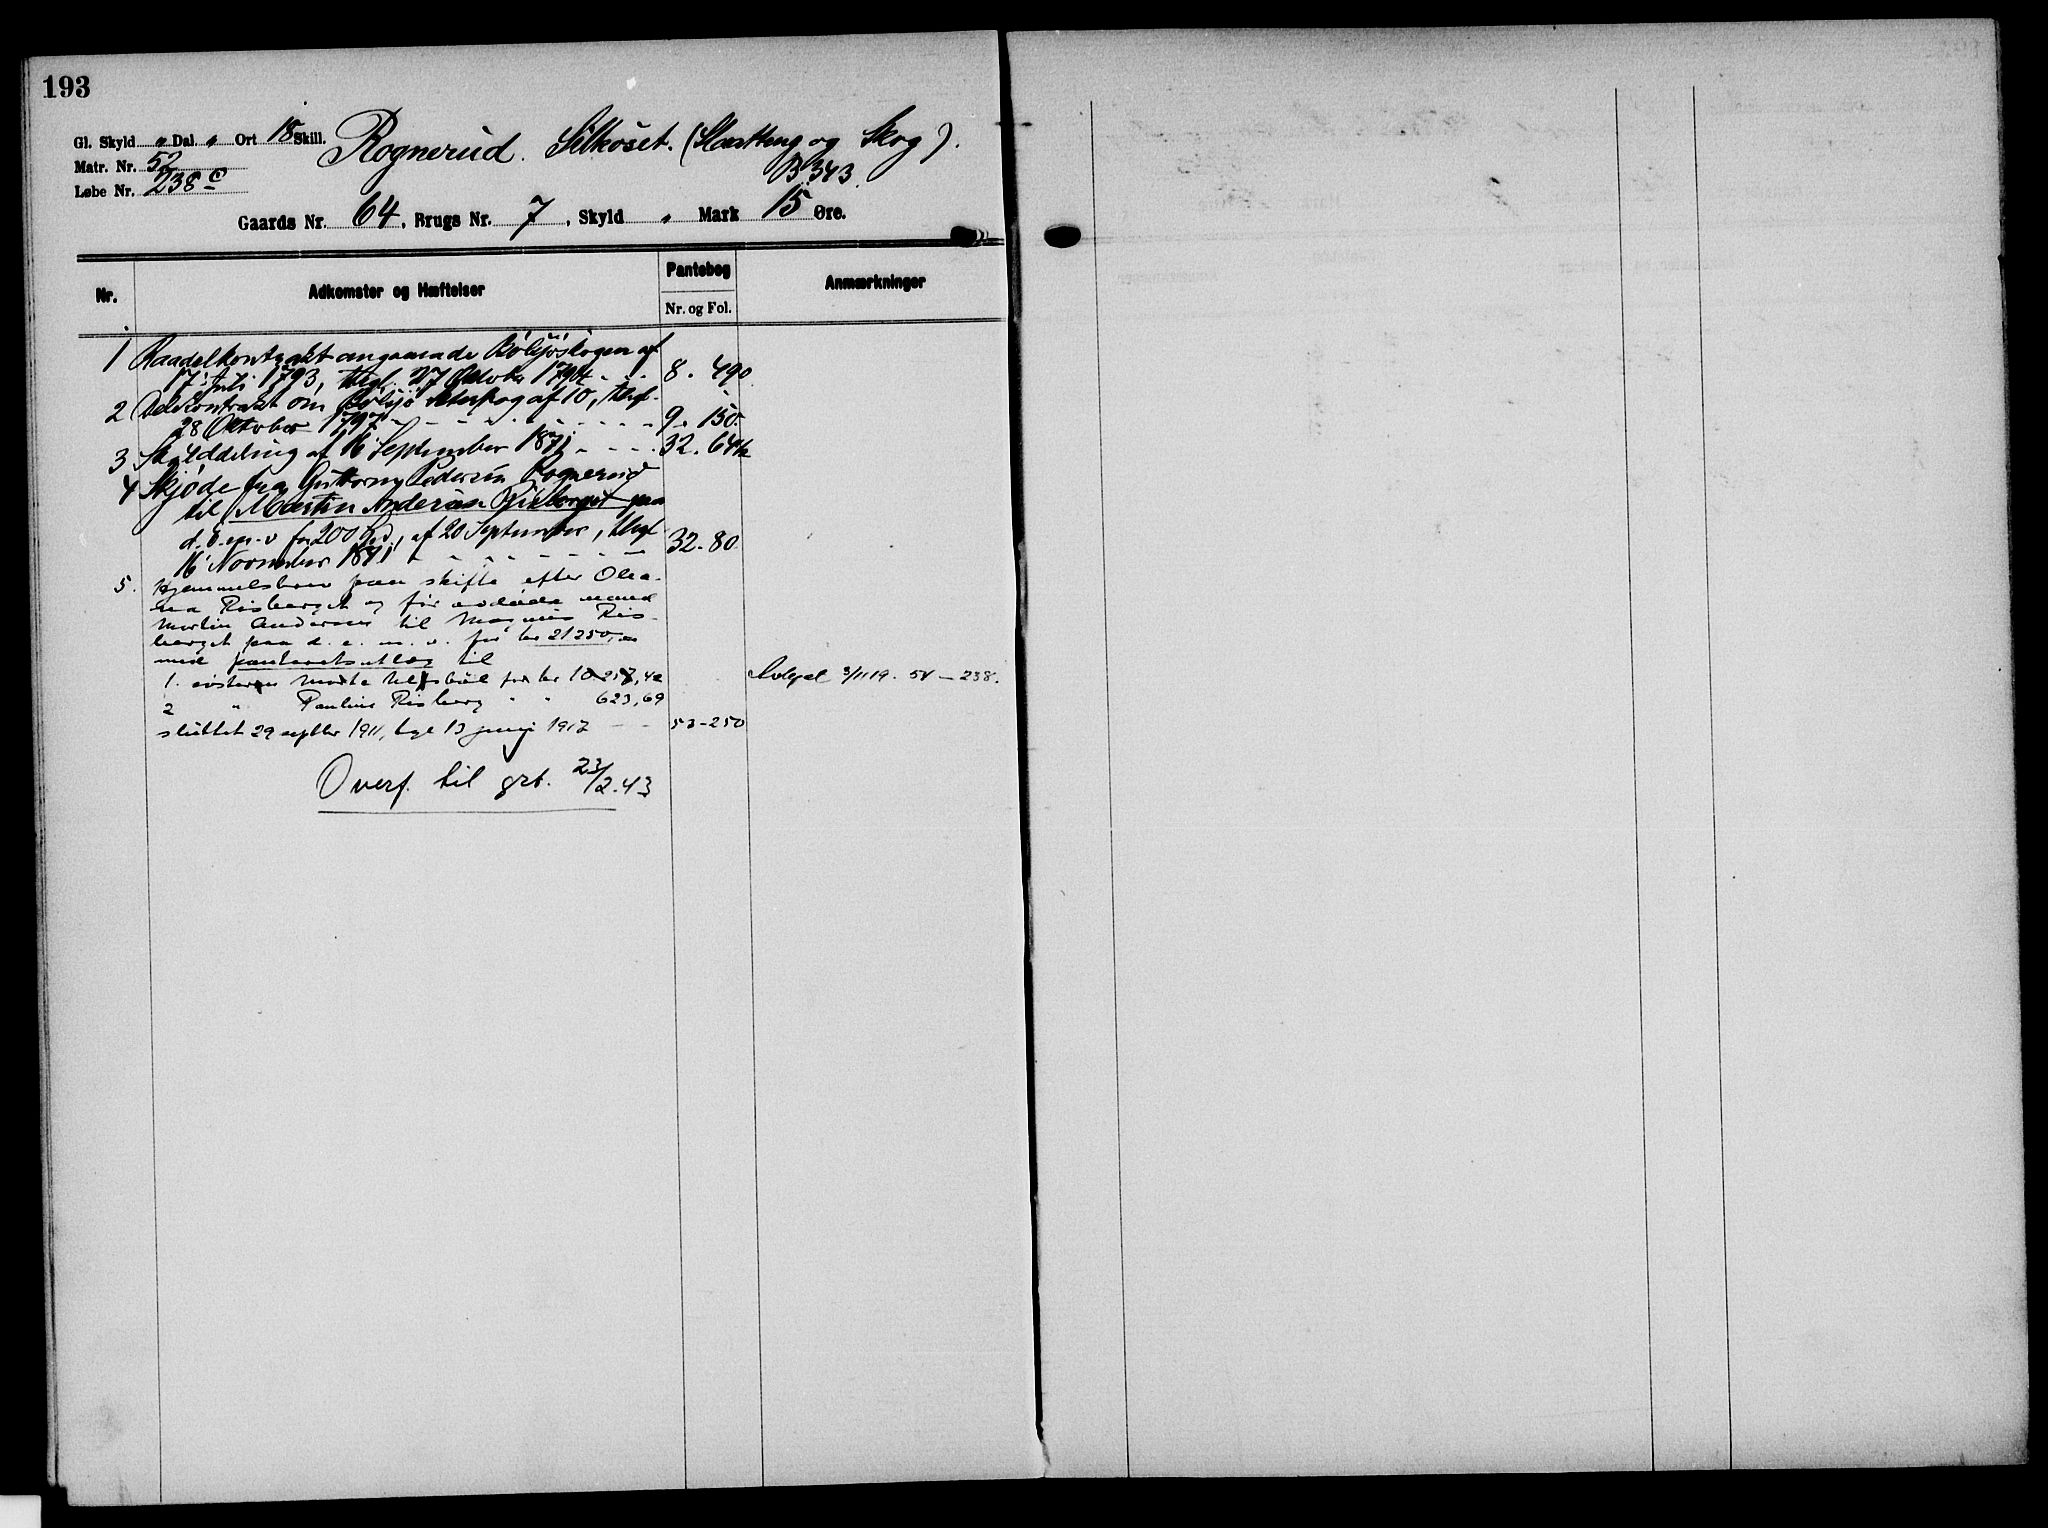 193
Gl. Skyld " Dal. " Ort 18 Skill. Rognerud. Silkoset. (Slaatteng og Skog).
Matr. Nr. 52
B. 343.
Løbe Nr. 238 c
Gaards Nr. 64, Brugs Nr. 7, Skyld " Mark 15 Øre.
Nr. Adkomster og Hæftelser Pantebog Anmærkninger
Nr. og Fol.
1 Raadelkontrakt angaaende af
17 Juli 1793, thgl. 27 Oktober 1794 - - 8. 490
2 Delekontrakt om af 10, thgl.
28 Oktober 1797 - - - - - 9. 150.
3 Skylddeling af 16 September 1871 - - - 32. 64
4 Skjøde fra Guttorm Pedersen Rognerud
til Martin Andersen Risberget paa
d. e. m. v for 200 Spd., af 20 September, thgl
16 November 1871 - - - - - 32. 80
5. Hjemmelsbrev paa skifte efter Olea-
na Risberget og før avdøde mand
Martin Andersen til Magnus Ris-
berget paa d. e. m. v. for kr 21250,
med panteretsutlæg til
1. søsteren Marte for kr 10257,42 Avlyst 3/11 19. 54 - 238.
2 " Pauline Risberg " " 623,69
sluttet 29 septbr 1911, tgl 13 juni 1917 - - 53-250
Overf. til grb. 23/2.43